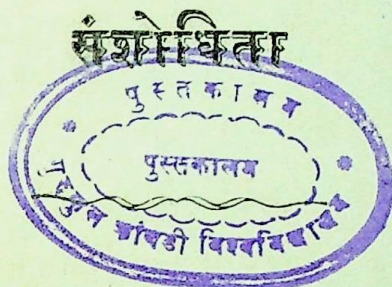 संशोधिता
पुस्तकालय
पुस्तकालय
गुरुकुल कांगडी विश्वविद्यालय